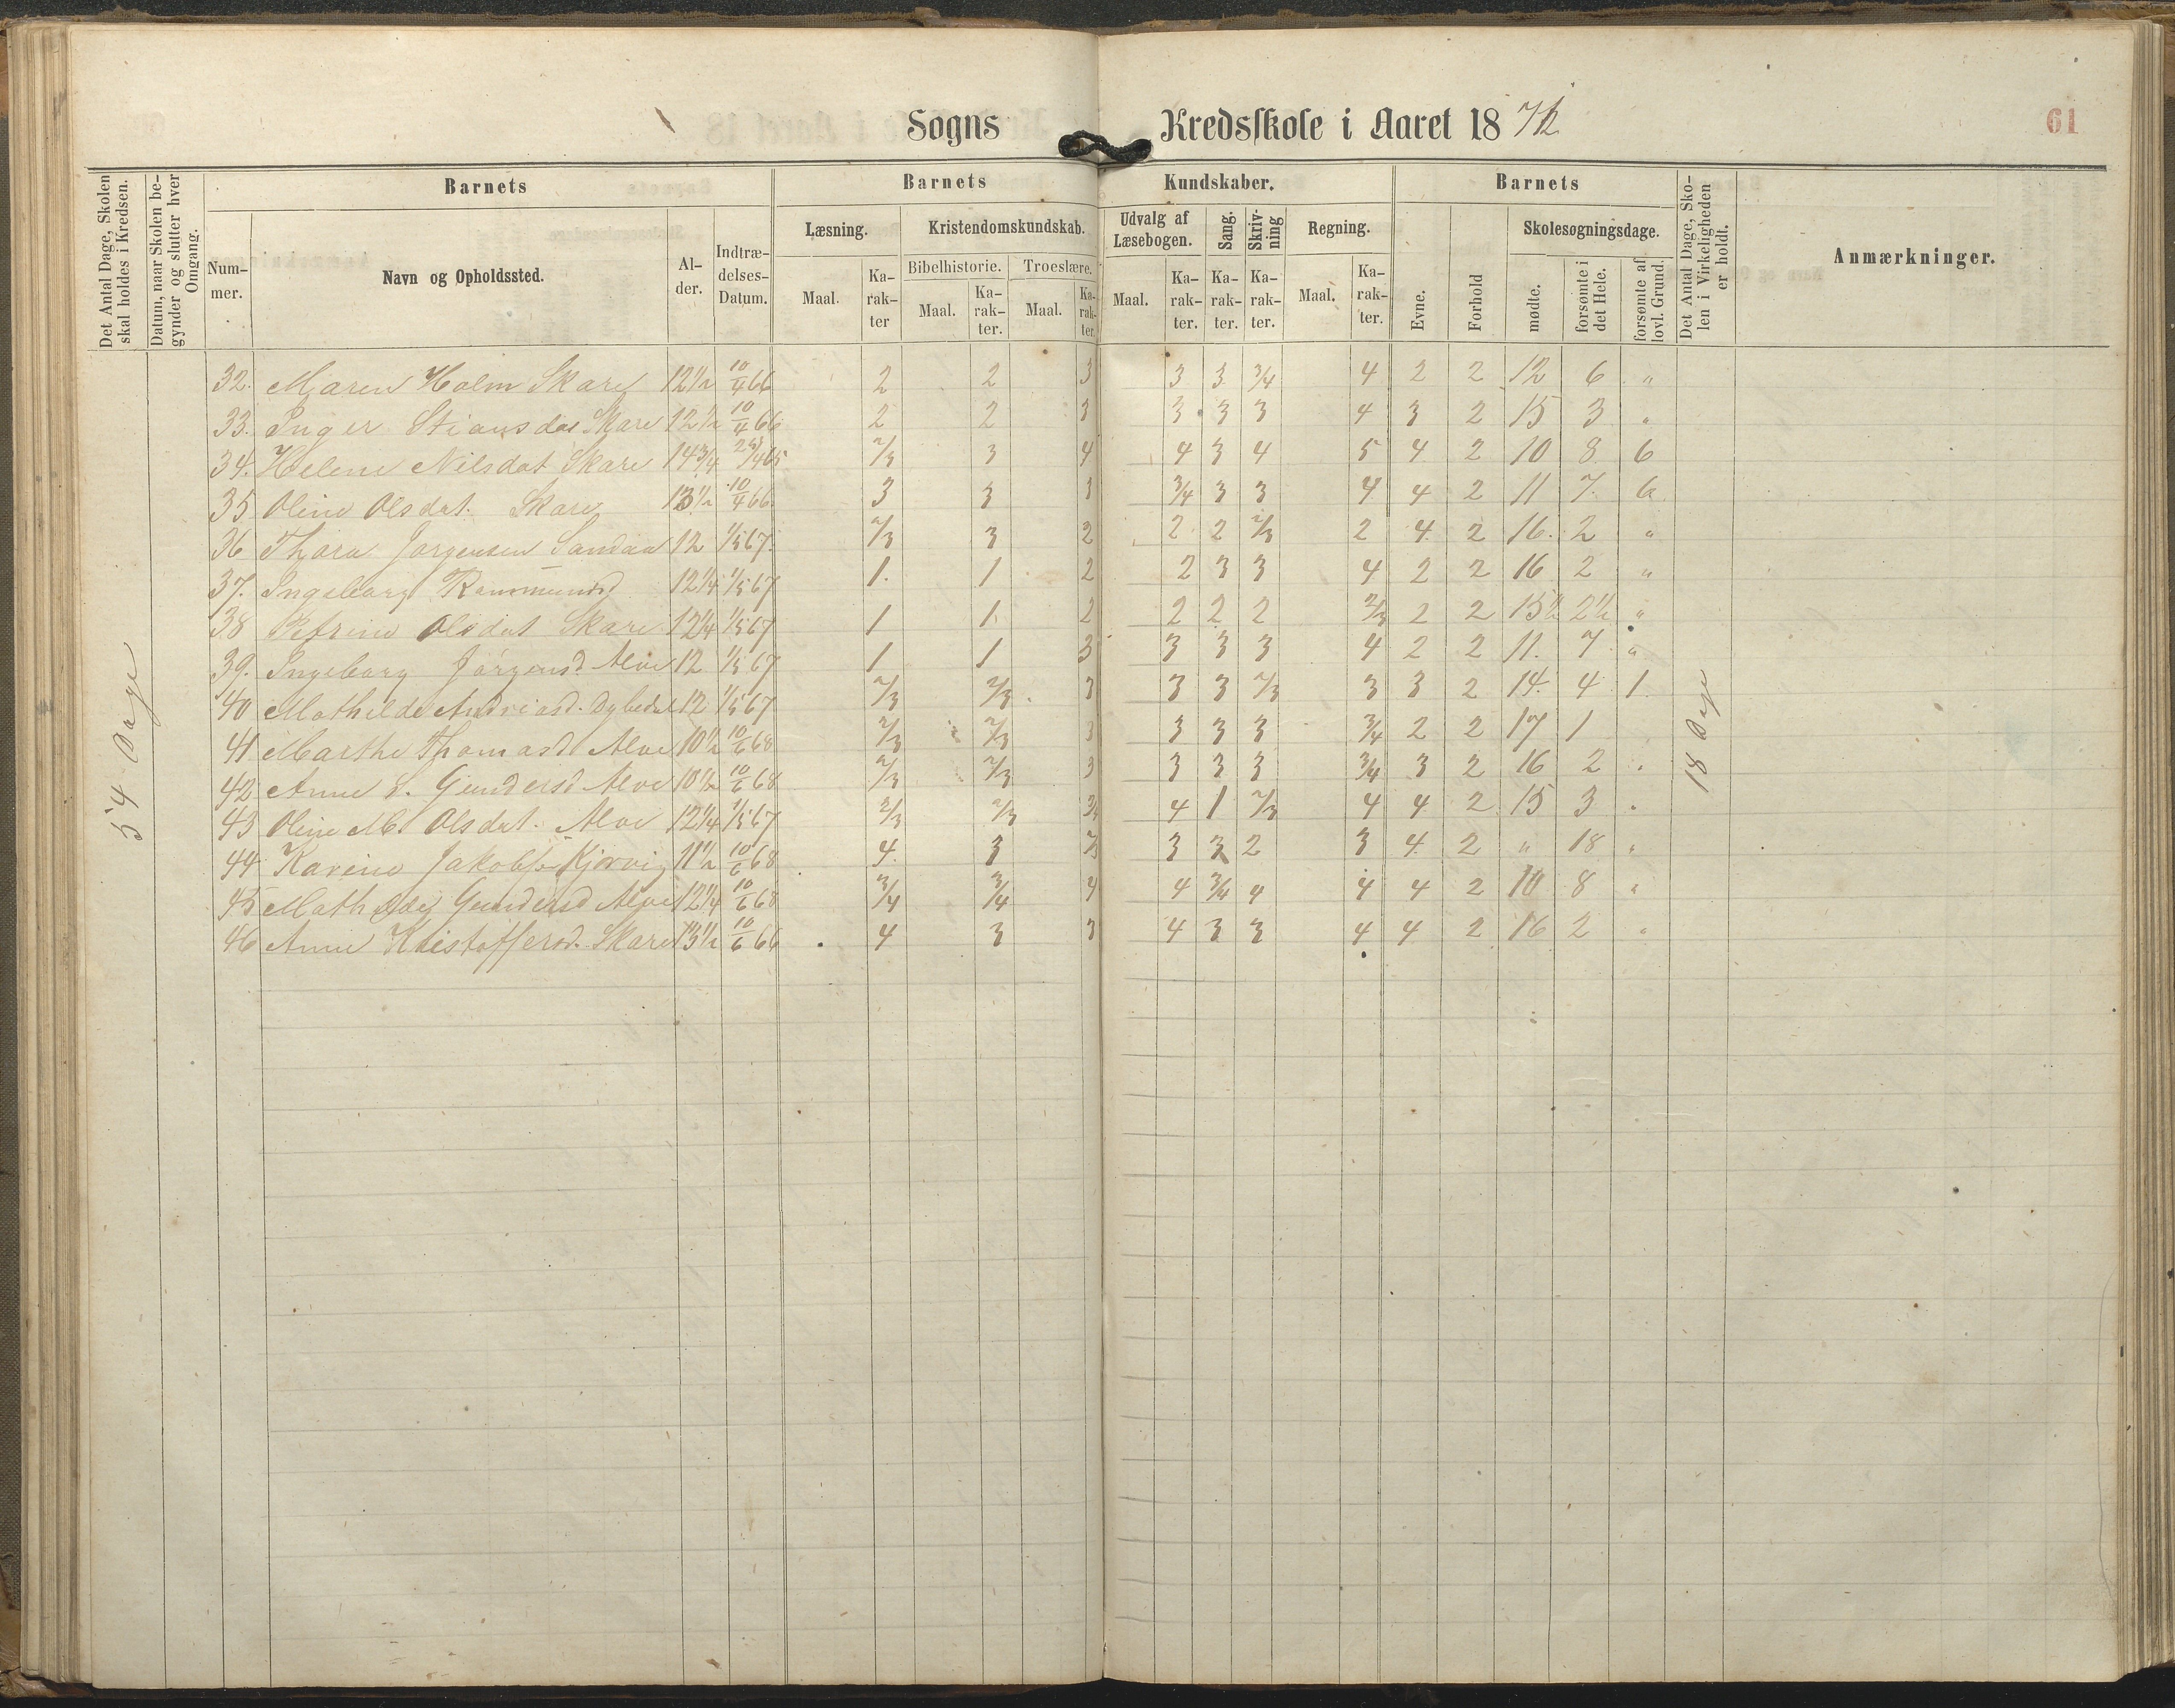 Sogns Kredsskole i Aaret 1872
61
Det Antal Dage, Skolen skal holdes i Kredsen.
Datum, naar Skolen begynder og slutter hver Omgang.
Barnets
Barnets Kundskaber.
Barnets
Det Antal Dage, Skolen i Virkeligheden er holdt.
Anmærkninger.
Num-mer.
Navn og Opholdssted.
Al-der.
Indtræ-delses-Datum.
Læsning.
Kristendomskundskab.
Udvalg af Læsebogen.
Sang.
Skriv-ning
Regning.
Evne.
Forhold
Skolesøgningsdage.
Bibelhistorie.
Troeslære.
Maal.
Ka-rak-ter
Maal.
Ka-rak-ter.
Maal.
Ka-rak-ter.
Maal.
Ka-rak-ter.
Ka-rak-ter.
Ka-rak-ter.
Maal.
Ka-rak-ter.
mødte.
forsømte i det Hele.
forsømte af lovl. Grund.
54 Dage
18 Dage
32. Maren Holm Skare 12 1/2 10/4 66 2 2 3 3 3 3/4 4 2 2 12 6 "
33. Inger Stiansdat Skare 12 1/2 10/4 66 2 2 3 3 3 3 4 3 2 15 3 "
34. Helene Nilsdat Skare 14 3/4 65 2/3 3 4 4 3 4 5 4 2 10 8 6
35 Oline Olsdat. Skare 13 1/2 10/4 66. 3 3 3 3/4 3 3 4 4 2 11 7. 6
36 Thara Jørgensen Sandaa 12 1/5 67. 2/3 3 2 2 2 2/3 2 4 2 16. 2 "
37. Ingeborg 12 1/4 1/5 67 1. 1 2 2 3 3 4 2 2 16 2 "
38 Petrine Olsdat Skare 12 1/4 1/5 67 1 1 2 2 2 2 2/3 2 2 15 1/2 2 1/2 "
39. Ingeborg Jørgensd. Alve 12 1/5 67 1 1 3 3 3 3 4 2 2 11. 7 "
40 Mathilde Andriasd. Dybedal 12 1/5 67 2/3 2/3 3 3 3 2/3 3 3 2 14. 4 1
41 Marthe Thomasd. Alve 10 1/2 10/6 68 2/3 2/3 3 3 3 3 3/4 2 2 17 1
42. Anne L. Gundersd Alve 10 1/2 10/6 68 2/3 2/3 3 3 3 3 3/4 3 2 16 2 "
43 Oline M. Olsdat. Alve 12 1/4 1/5 67 2/3 2/3 4 1 2/3 4 4 2 15 3 "
44 Karine Jakobs. Kjørvig 11 1/2 10/6 68 4 3 3 3 2 3 4 2 " 18 "
45 Mathilde Gundersd Alve 12 1/4 10/6 68 3/4 3/4 4 4 3/4 4 4 4 2 10 8 "
46 Anne Kristoffersd. Skare 13 1/2 10/6 66 4 3 3 4 3 3 4 4 2 16 2 "